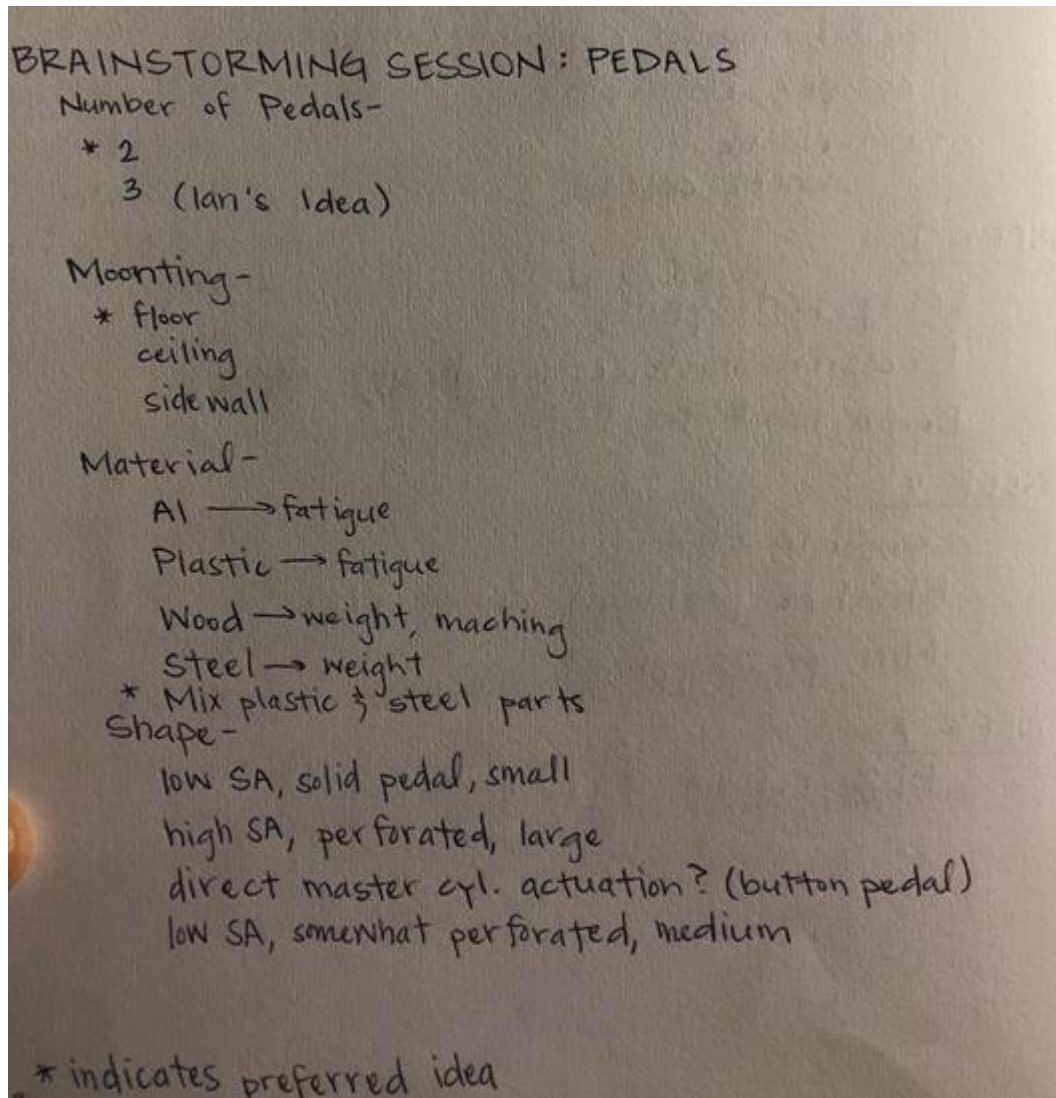 BRAINSTORMING SESSION: PEDALS
Number of Pedals-
* 2
3 (Ian's Idea)
Moonting-
* floor
ceiling
side wall
Material-
Al → fatigue
Plastic → fatigue
Wood → weight, maching
Steel → weight
* Mix plastic & steel parts
Shape-
low SA, solid pedal, small
high SA, perforated, large
direct master cyl. actuation? (button pedal)
low SA, somewhat perforated, medium
* indicates preferred idea